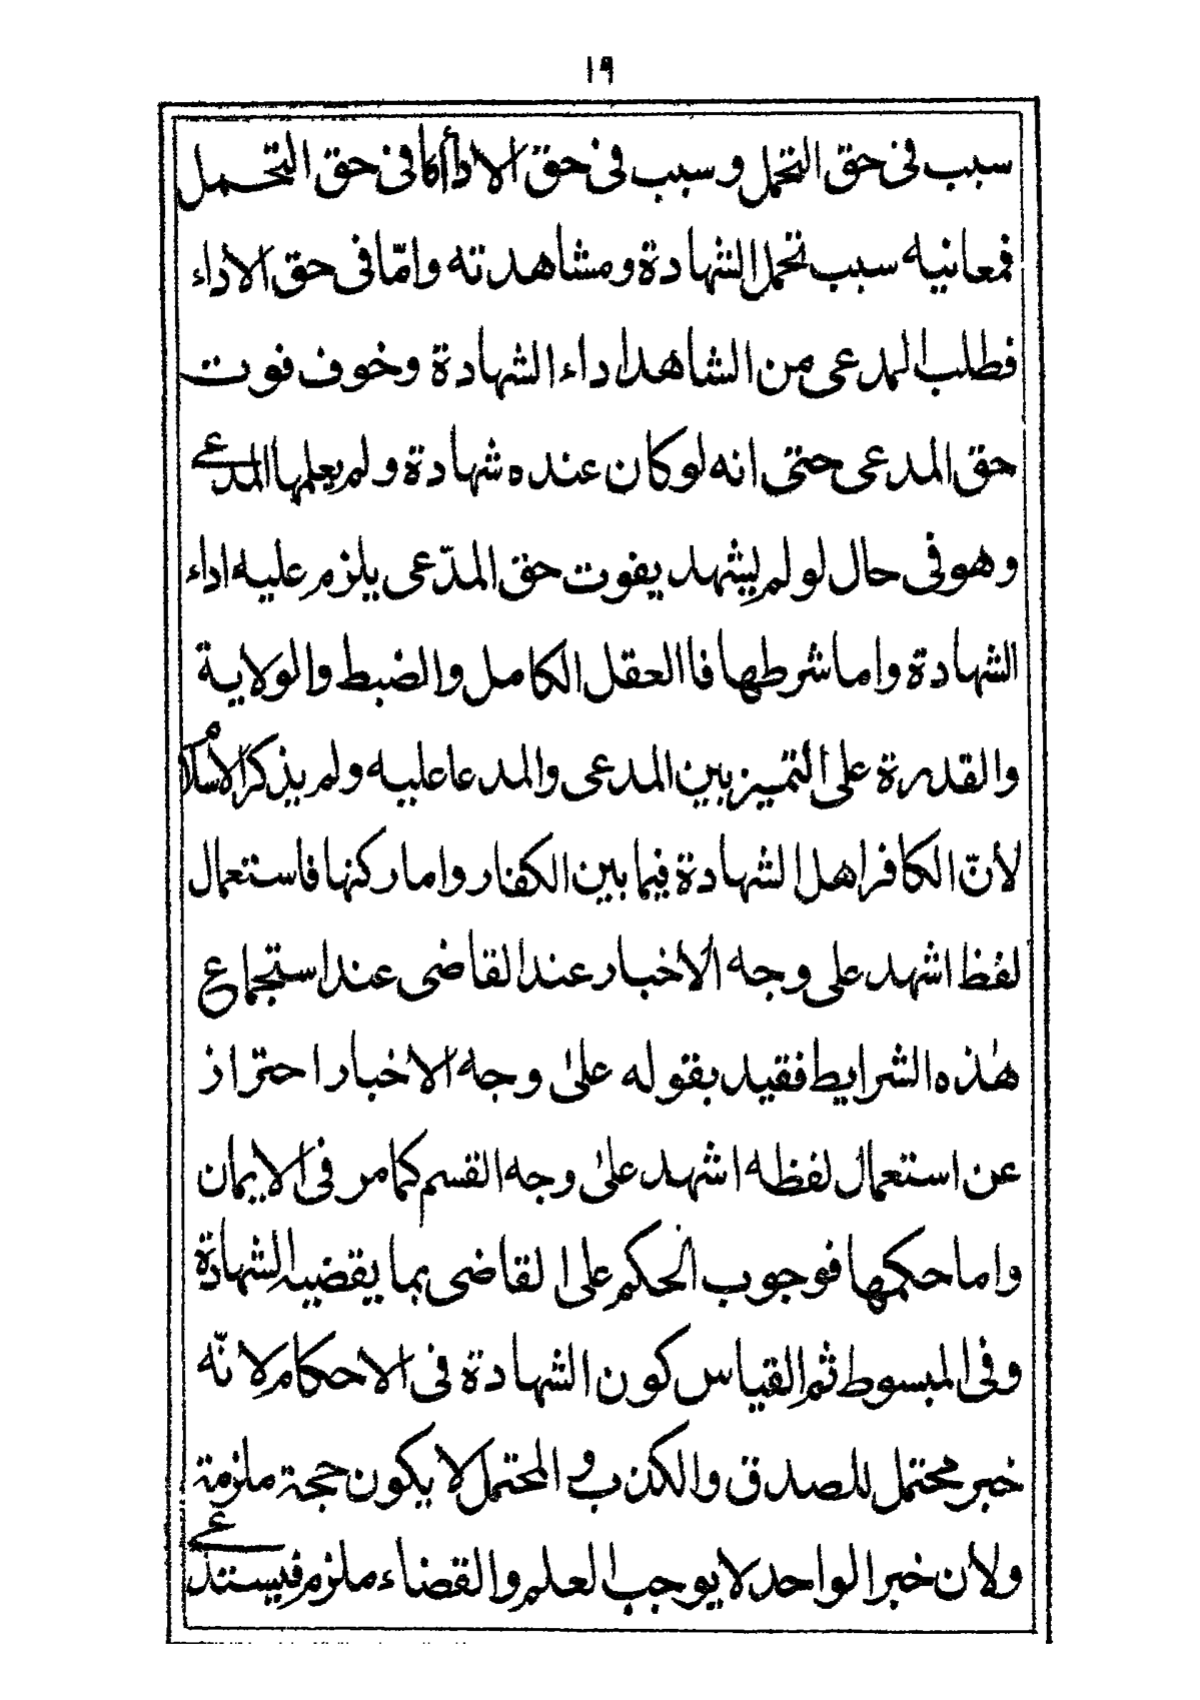 ١٩
سبب فى حق التحمل و سبب فى حق الاداأما فى حق التحمل
فمعانيه سبب تحمل الشهادة ومشاهدته وامّا فى حق الاداء
فطلب المدعى من الشاهد اداء الشهادة وخوف فوت
حق المدعى حتى انه لو كان عنده شهادة ولم يعلمها المدعى
وهو فى حال لو لم يشهد يفوت حق المدّعى يلزم عليه اداء
الشهادة واما شرطها فاالعقل الكامل والضبط والولاية
والقدرة على التميز بين المدعى والمدعا عليه ولم يذكر الاسلام
لأنّ الكافر اهل الشهادة فيما بين الكفار واما ركنها فاستعمال
لفظ اشهد على وجه الاخبار عند القاضى عند استجماع
هٰذه الشرايط فقيد بقوله علىٰ وجه الاخبار احتراز
عن استعمال لفظه اشهد علىٰ وجه القسم كما مر فى الايمان
واما حكمها فوجوب الحكم على القاضى بما يقضيه الشهادة
وفى المبسوط ثم القياس كون الشهادة فى الاحكام لانّه
خبر محتمل للصدق والكذب و المحتمل لا يكون حجة ملزمة
ولأن خبر الواحد لا يوجب العلم والقضاء ملزم فيستدعى